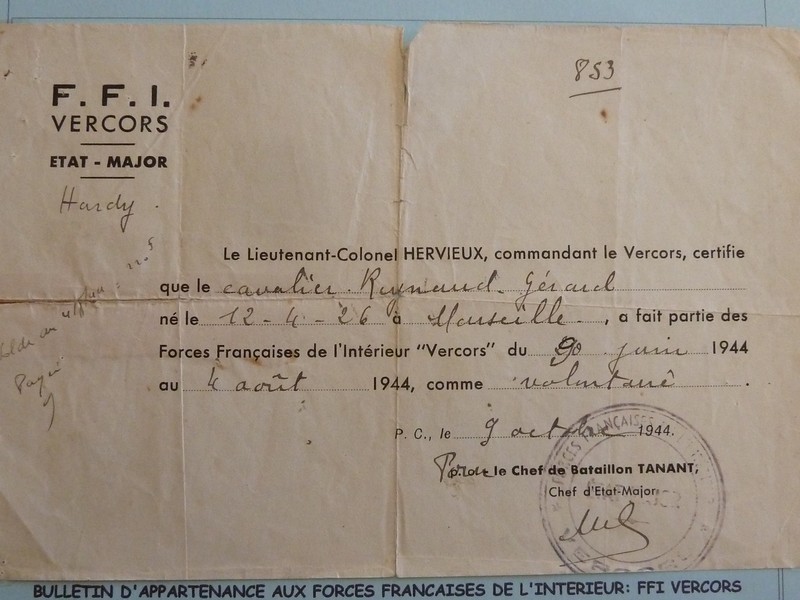 853
F. F. I.
VERCORS
ETAT - MAJOR
Hardy.
Le Lieutenant-Colonel HERVIEUX, commandant le Vercors, certifie
que le cavalier Gérard
né le 12 - 4 - 26 à Marseille, a fait partie des
Forces Françaises de l'Intérieur "Vercors" du 20 juin 1944
au 4 août 1944, comme volontaire.
P. C., le 9 octobre 1944.
le Chef de Bataillon TANANT,
Chef d'Etat-Major
FORCES FRANÇAISES
BULLETIN D'APPARTENANCE AUX FORCES FRANCAISES DE L'INTERIEUR: FFI VERCORS